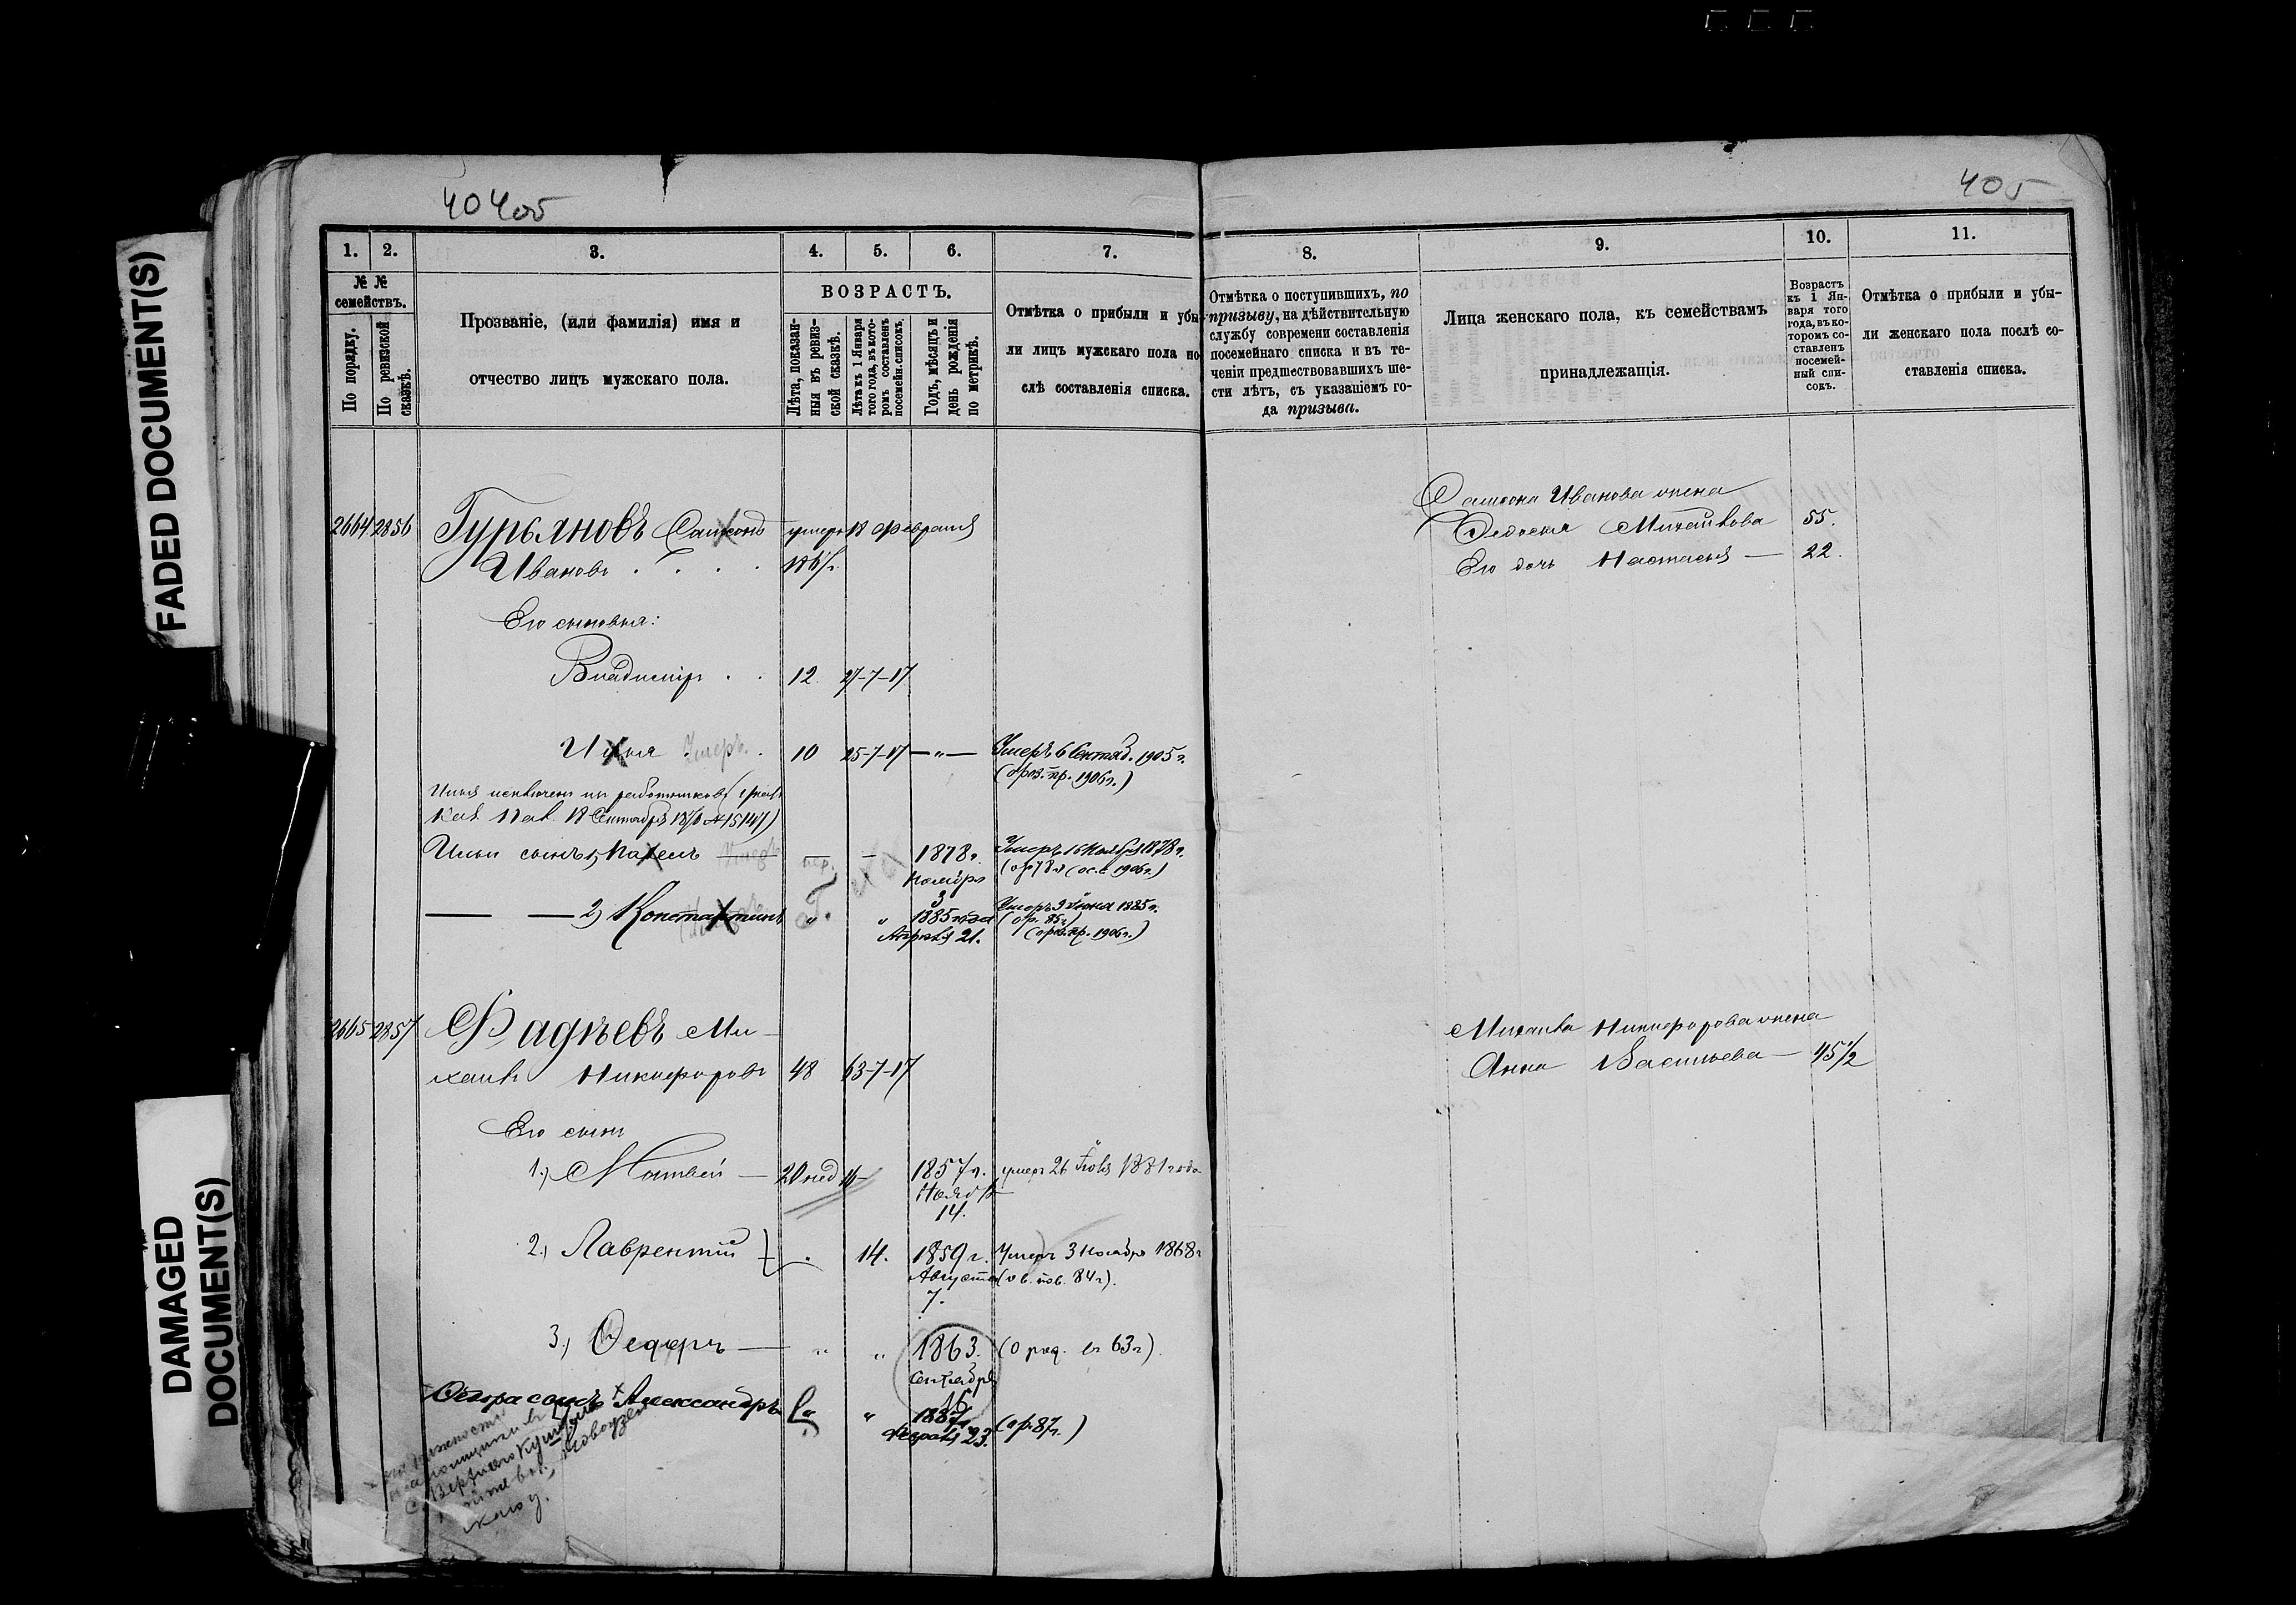 FADED DOCUMENT(S)
DAMAGED
DOCUMENT(S)
404об
405
1. 2. 3. 4. 5. 6. 7. 8. 9. 10. 11.
№ №
семействъ.
По порядку.
По ревизской
сказкѣ.
Прозваніе, (или фамилія) имя и
отчество лицъ мужскаго пола.
ВОЗРАСТЪ.
Лѣта, показан-
ныя въ ревиз-
ской сказкѣ.
Лѣта къ 1 Января
того года, въ кото-
ромъ составленъ
посемейн. списокъ.
Годъ, мѣсяцъ и
день рожденія
по метрикѣ.
Отмѣтка о прибыли и убы-
ли лицъ мужскаго пола по-
слѣ составленія списка.
Отмѣтка о поступившихъ, по
призыву, на дѣйствительную
службу современи составленія
посемейнаго списка и въ те-
ченіи предшествовавшихъ ше-
сти лѣтъ, съ указаніемъ го-
да призыва.
Лица женскаго пола, къ семействамъ
принадлежащія.
Возрастъ
къ 1 Ян-
варя того
года, въ ко-
торомъ со-
ставленъ
посемей-
ный спи-
сокъ.
Отмѣтка о прибыли и убы-
ли женскаго пола послѣ со-
ставленія списка.
2664 2856 Гурьяновъ Самсонъ умеръ 18 Февраля
Ивановъ
Самсона Иванова жена
Федосья Михайлова 55.
Его дочь Настасья — 22.
Его сыновья:
Владиміръ 12. 27-7-17
Илья Умеръ. 10 25-7-17 — „ — Умеръ 6 Сентяб. 1905 г.
(пр. 1906 г.)
Илья исключенъ из работниковъ
Каз. Пал. 18 Сентября
Ильи сынъ 1, Павелъ Умеръ — — 1878 г. Умеръ 16 Ноября 1878 г.
Ноября (1906 г.)
3
— — 2) Константинъ „ „ 1885 года Умеръ 9 Іюня 1885 г.
Апрѣля 21. (пр. 1906 г.)
2665 2857 Фадѣевъ Ми-
хаилъ Никифоровъ 48 63-7-17
Михаила Никифорова жена
Анна Васильева — 45 1/2
Его сыны
1.) Матвей — 20 нед 16 — 1857 г. умеръ 26 1881 года
Нояб
14.
2.) Лаврентій 14. 1859 г. Умеръ 3 Ноября 1868 г.
Августа (84 г).
7.
3.) Федоръ — „ „ 1863. (о род. въ 63 г).
Сентября
16
Федора сынъ Александръ „ 1887 г. (ор. 87 г.)
Февраля 23.